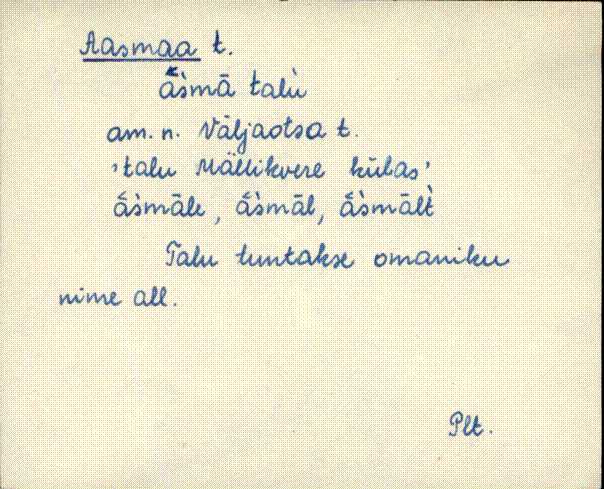 Aasmaa t.
ā̆s̀mā talù
am. n. Väljaotsa t.
'talu Mällikvere külas'
ā̆s̀māle, ā̆s̀māl, ā̆s̀mālt̀
Talu tuntakse omaniku
nime all.
Plt.